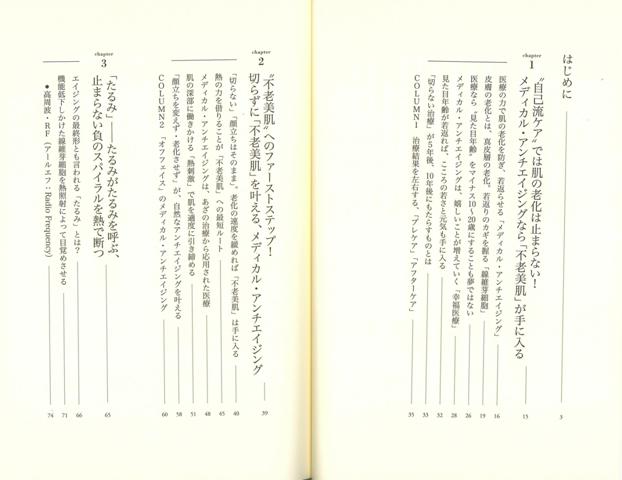 はじめに 3
chapter 1
〝自己流ケア〟では肌の老化は止まらない！
メディカル・アンチエイジングなら「不老美肌」が手に入る 15
医療の力で肌の老化を防ぎ、若返らせる「メディカル・アンチエイジング」 16
皮膚の老化とは、真皮層の老化。若返りのカギを握る「線維芽細胞」 19
医療なら〝見た目年齢〟をマイナス10〜20歳にすることも夢ではない 26
メディカル・アンチエイジングは、嬉しいことが増えていく「幸福医療」 28
見た目年齢が若返れば、こころの若さと元気も手に入る 32
「切らない治療」が5年後、10年後にもたらすものとは 33
COLUMN1 治療結果を左右する、「プレケア」「アフターケア」 35
chapter 2
〝不老美肌〟へのファーストステップ！
切らずに「不老美肌」を叶える、メディカル・アンチエイジング 39
「切らない」「顔立ちはそのまま」。老化の速度を緩めれば「不老美肌」は手に入る 40
熱の力を借りることが「不老美肌」への最短ルート 45
メディカル・アンチエイジングは、あざの治療から応用された医療 48
肌の深部に働きかける「熱刺激」で肌を適度に引き締める 51
「顔立ちを変えず・老化させず」が、自然なアンチエイジングを叶える 58
COLUMN2 「オフフェイス」のメディカル・アンチエイジング 60
chapter 3
「たるみ」——たるみがたるみを呼ぶ、
止まらない負のスパイラルを熱で断つ 65
エイジングの最終形とも言われる「たるみ」とは？ 66
機能低下しかけた線維芽細胞を熱照射によって目覚めさせる 71
●高周波・RF（アールエフ：Radio Frequency） 74